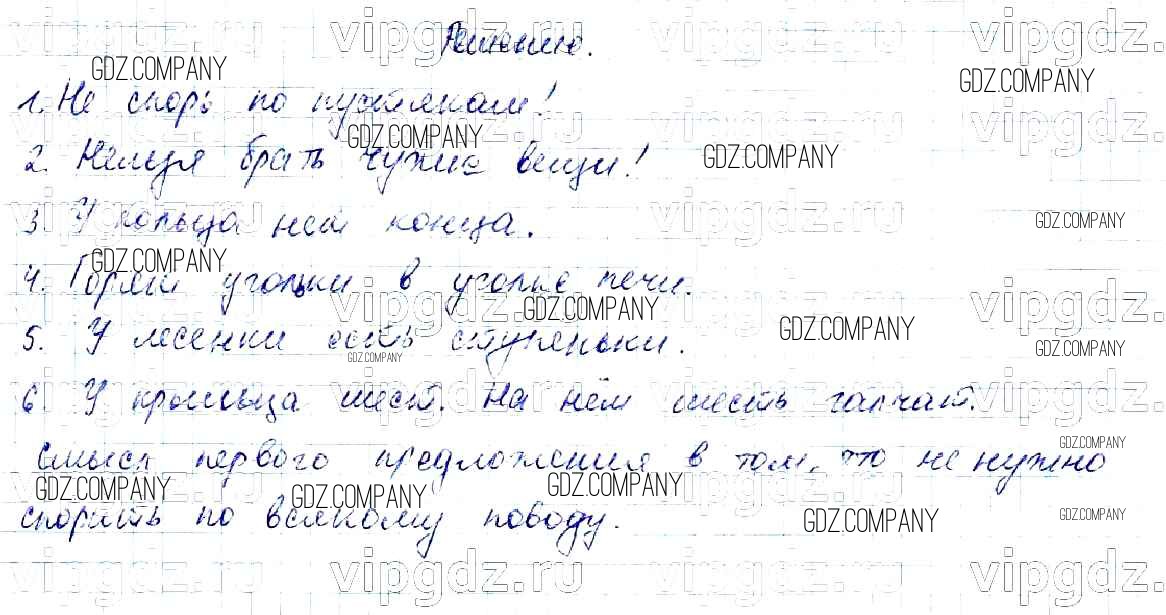 Решение.
1. Не спорь по пустякам!
2. Нельзя брать чужие вещи!
3. У кольца нет конца.
4. Горят угольки в уголке печи.
5. У лесенки есть ступеньки.
6. У крыльца шест. На нём шесть галчат.
Смысл первого предложения в том, что не нужно
спорить по всякому поводу.
vipgdz.ru
GDZ.COMPANY